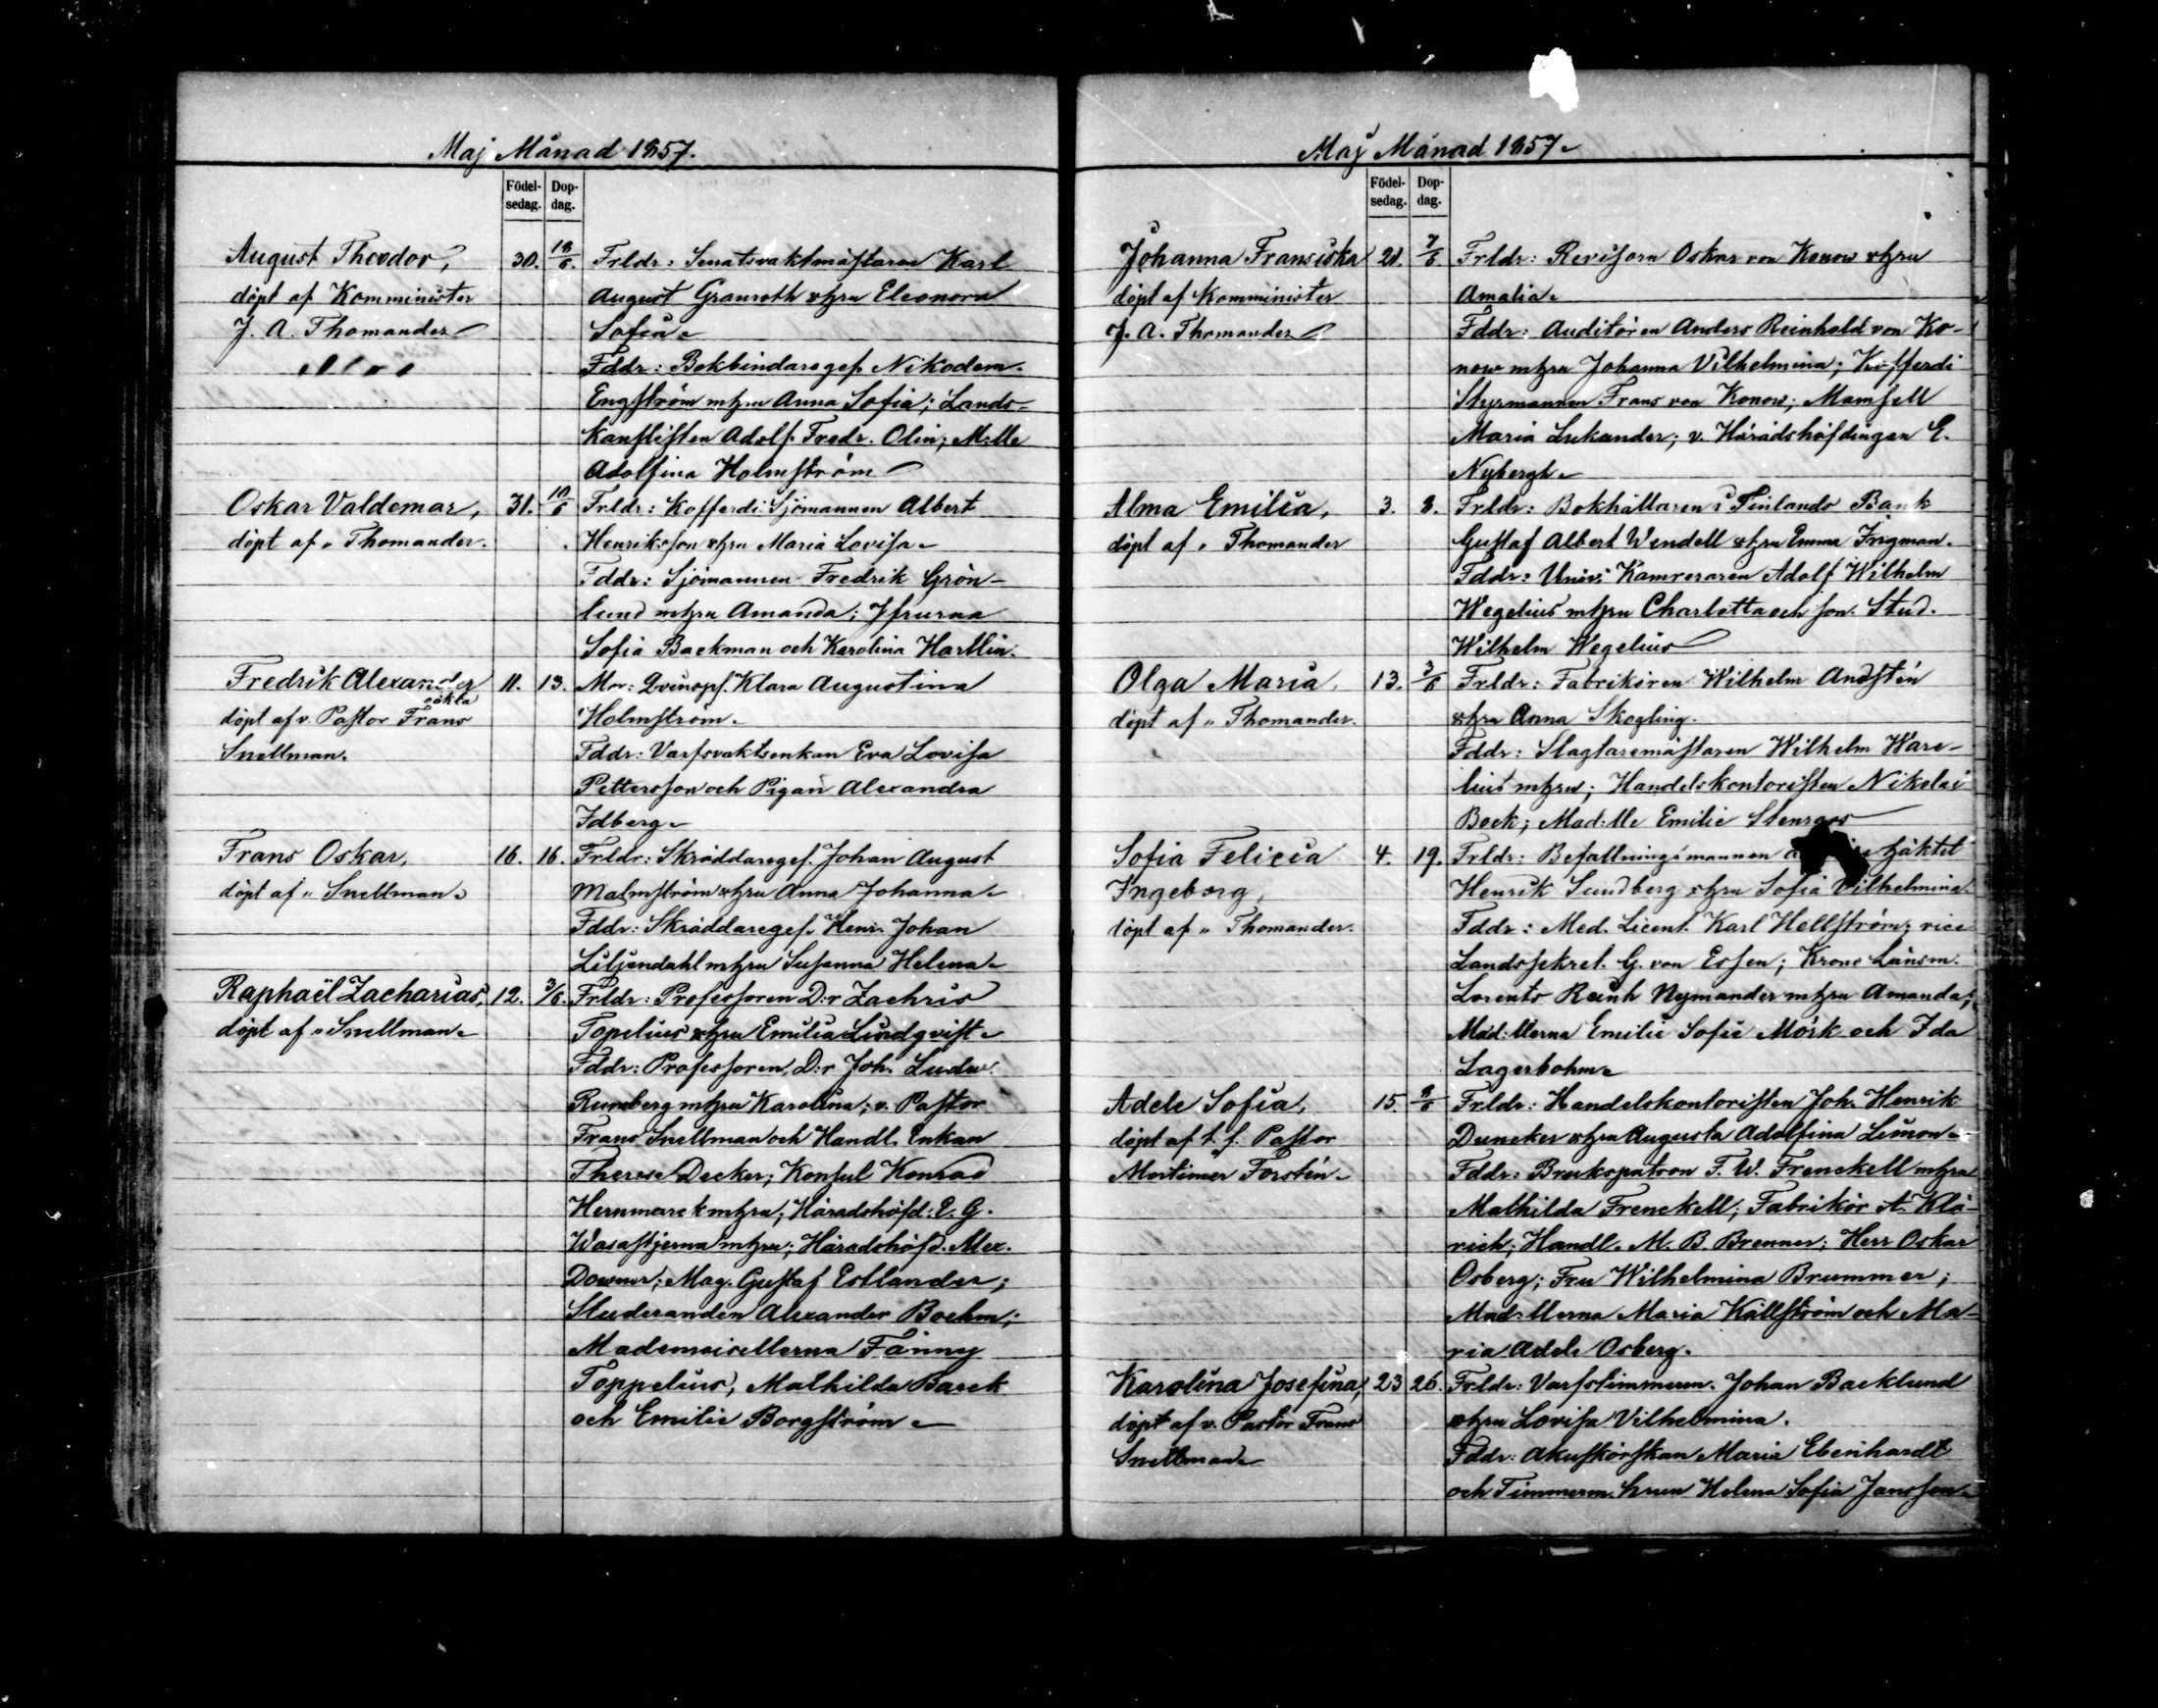 Maj Månad 1857.
Födel-
sedag.
Dop-
dag.
August Theodor,
döpt af Komminister
J. A. Thomander
30.
18/6.
Frldr: Senatsvaktmästaren Karl
August Granroth o. hru Eleonora
Sofia.
Fddr: Bokbindaregef. Nikodem.
Engström m. hru Anna Sofia; Lands-
kanslisten Adolf Fredr. Olin; M:lle
Adolfina Holmström
Oskar Valdemar,
döpt af „ Thomander.
31.
10/6
Frldr: Kofferdi Sjömannen Albert
Henriksson o. hru Maria Lovisa.
Fddr: Sjömannen Fredrik Grön-
lund m. hru Amanda; Jfrurna
Sofia Backman och Karolina Hartlin.
Fredrik Alexander
oäkta
döpt af v. Pastor Frans
Snellman.
11.
13.
Mor: Qvinsp. Klara Augustina
Holmström.
Fddr: Varfsvaktsenkan Eva Lovisa
Pettersson och Pigan Alexandra
Idberg.
Frans Oskar,
döpt af „ Snellman.
16.
16.
Frldr: Skräddaregef. Johan August
Malmström o. hru Anna Johanna.
Fddr: Skräddaregef. Henr. Johan
Liljendahl m. hru Susanna Helena.
Raphaël Zacharias,
döpt af „ Snellman.
12.
3/6.
Frldr: Professoren D:r Zachris
Topelius o. hru Emilia Lindqvist.
Fddr: Professoren, D:r Joh. Ludv.
Runeberg m. hru Karolina; v. Pastor
Frans Snellman och Handl. Enkan
Therese Decker; Konsul Konrad
Hernmarck m. hru; Häradshöfd: E. G.
Wasastjerna m. hru; Häradshöfd. Alex.
Downer; Mag. Gustaf Estlander;
Studeranden Alexander Boehm;
Mademoisellerna Fanny
Toppelius, Mathilda Barck
och Emilie Borgström.
Maj Månad 1857.
Födel-
sedag.
Dop-
dag.
Johanna Fransiska
döpt af Komminister
J. A. Thomander
21.
7/6.
Frldr: Revisorn Oskar von Konow o. hru
Amalia.
Fddr: Auditören Anders Reinhold von Ko-
now m. hru Johanna Vilhelmina; Kofferdi
Styrmannen Frans von Konow; Mamsell
Maria Lukander; v. Häradshöfdingen E.
Nybergh.
Alma Emilia,
döpt af „ Thomander
3.
8.
Frldr: Bokhållaren i Finlands Bank
Gustaf Albert Wendell o. hru Emma Frigman.
Fddr: Univ: Kamreraren Adolf Wilhelm
Wegelius m. hru Charlotta och son. Stud.
Wilhelm Wegelius
Olga Maria,
döpt af „ Thomander.
13.
3/6
Frldr: Fabrikören Wilhelm Andstén
o. hru Anna Skogling.
Fddr: Slagtaremästaren Wilhelm Ware-
lius m. hru; Handelskontoristen Nikolai
Bock; Mad:lle Emilie Stenroos
Sofia Felicia
Ingeborg,
döpt af „ Thomander.
4.
19.
Frldr: Befallningsmannen häktet
Henrik Sundberg o. hru Sofia Vilhelmina.
Fddr: Med. Licent. Karl Hellström; vice
Landssekret. G. von Essen; Krono Länsm.
Lorents Reinh Nymander m. hru Amanda;
Mad:llerna Emilie Sofie Mörk och Ida
Lagerbohm.
Adele Sofia,
döpt af t. f. Pastor
Mortimer Forstén.
15.
8/6
Frldr: Handelskontoristen Joh. Henrik
Duncker o. hru Augusta Adolfina Limon.
Fddr: Brukspatron F. W. Frenckell m. hru
Mathilda Frenckell; Fabrikör A. Klä-
rich; Handl. M. B. Brenner; Herr Oskar
Osberg; Fru Wilhelmina Brummer;
Mad:llerna Maria Källström och Ma-
ria Adele Osberg.
Karolina Josefina,
döpt af v. Pastor Frans
Snellman.
23
26.
Frldr: Varfstimmerm. Johan Backlund
o. hru Lovisa Vilhelmina.
Fddr: Akuskörskan Maria Ebenhardt
och Timmerm. hrun Helena Sofia Jansson.